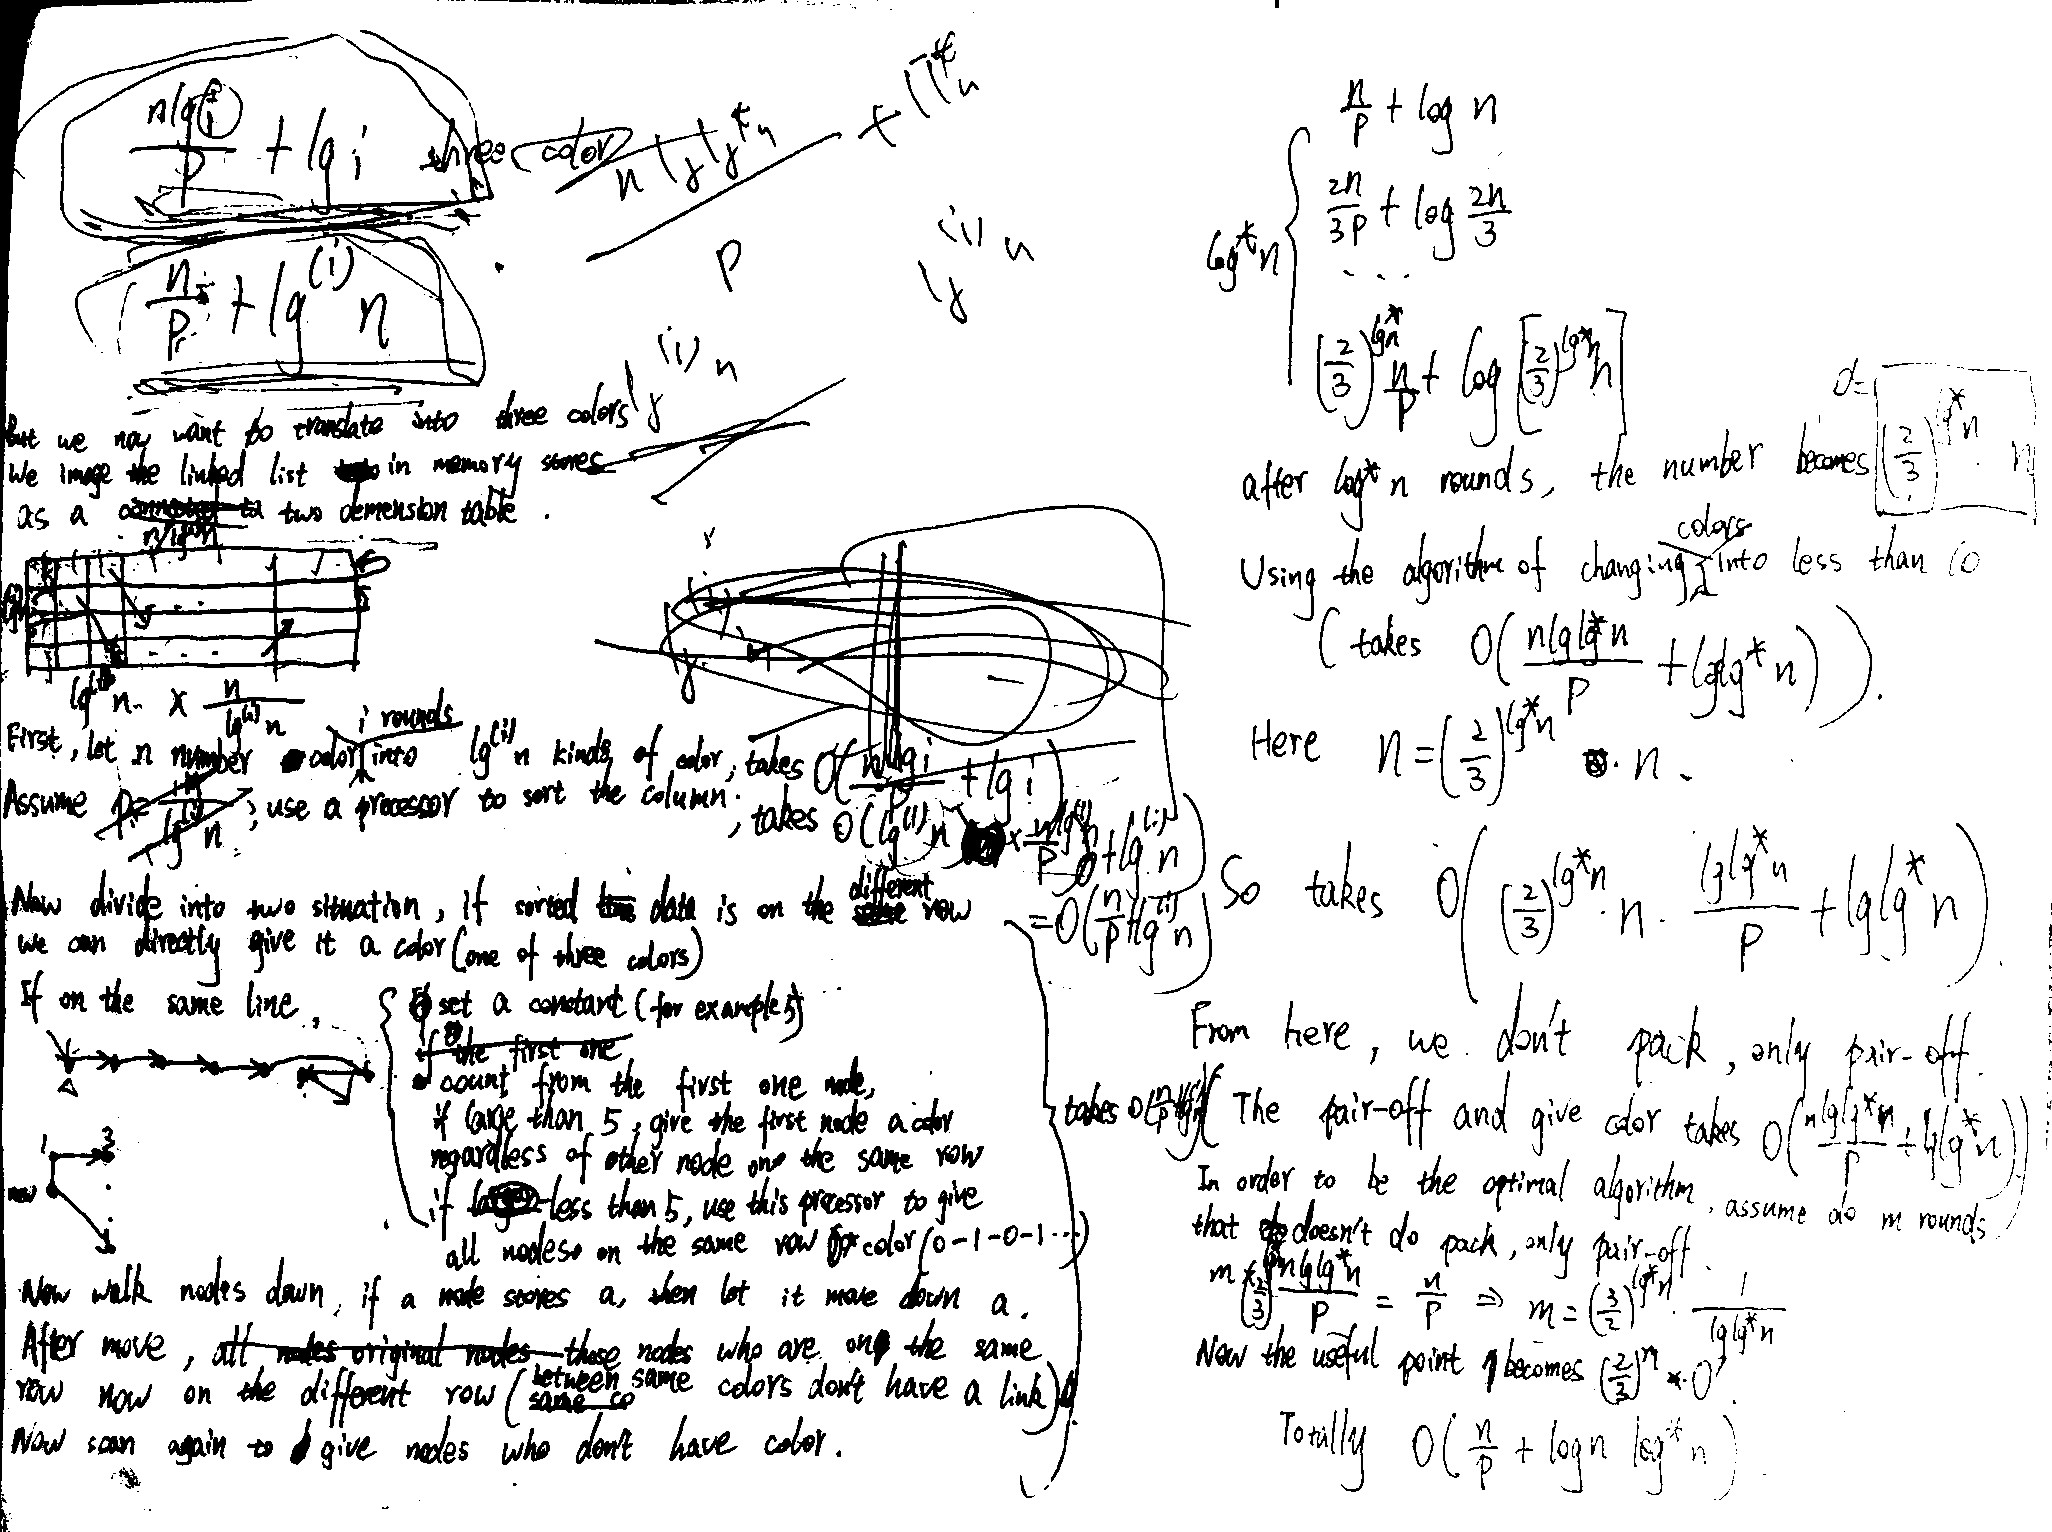 n lg i / p + lg i three color
n lg lg* n / p
n/p + lg^(i) n
lg^(i) n
lg^(i) n
But we may want to translate into three colors
We image the linked list in memory stores
as a two demension table.
lg^(i) n × n / lg^(i) n
First, let n number color into i rounds lg^(i) n kinds of color, takes O(n lg i / p + lg i)
Assume ; use a processor to sort the column, takes O(lg^(i) n × n / lg^(i) n / p + lg^(i) n)
= O(n/p + lg^(i) n)
Now divide into two situation, if sorted data is on the different row
we can directly give it a color (one of three colors)
If on the same line,
set a constant (for example 5)
if the first one
count from the first one node,
if large than 5, give the first node a color
regardless of other node on the same row
if less than 5, use this processor to give
all nodes on the same row color (0-1-0-1...)
1 3
new
takes O(n/p + lg^(i) n)
Now walk nodes down, if a node stores a, then let it move down a.
After move, all nodes original nodes those nodes who are on the same
row now on the different row (between same colors don't have a link).
Now scan again to give nodes who don't have color.
log* n
n/p + log n
2n/3p + log 2n/3
...
(2/3)^lg* n n/p + log [(2/3)^lg* n n]
after log* n rounds, the number becomes (2/3)^lg* n · n
Using the algorithm of changing colors into less than 10
(takes O(n lg lg* n / p + lg lg* n)).
Here n = (2/3)^lg* n · n.
So takes O((2/3)^lg* n · n · lg lg* n / p + lg lg* n).
From here, we don't pack, only pair-off.
(The pair-off and give color takes O(n lg lg* n / p + lg lg* n))
In order to be the optimal algorithm, assume do m rounds
that doesn't do pack, only pair-off.
m × (2/3)^lg* n n lg lg* n / p = n/p ⇒ m = (3/2)^lg* n · 1 / lg lg* n
Now the useful point becomes (2/3)^m * d
Totally O(n/p + log n log* n)